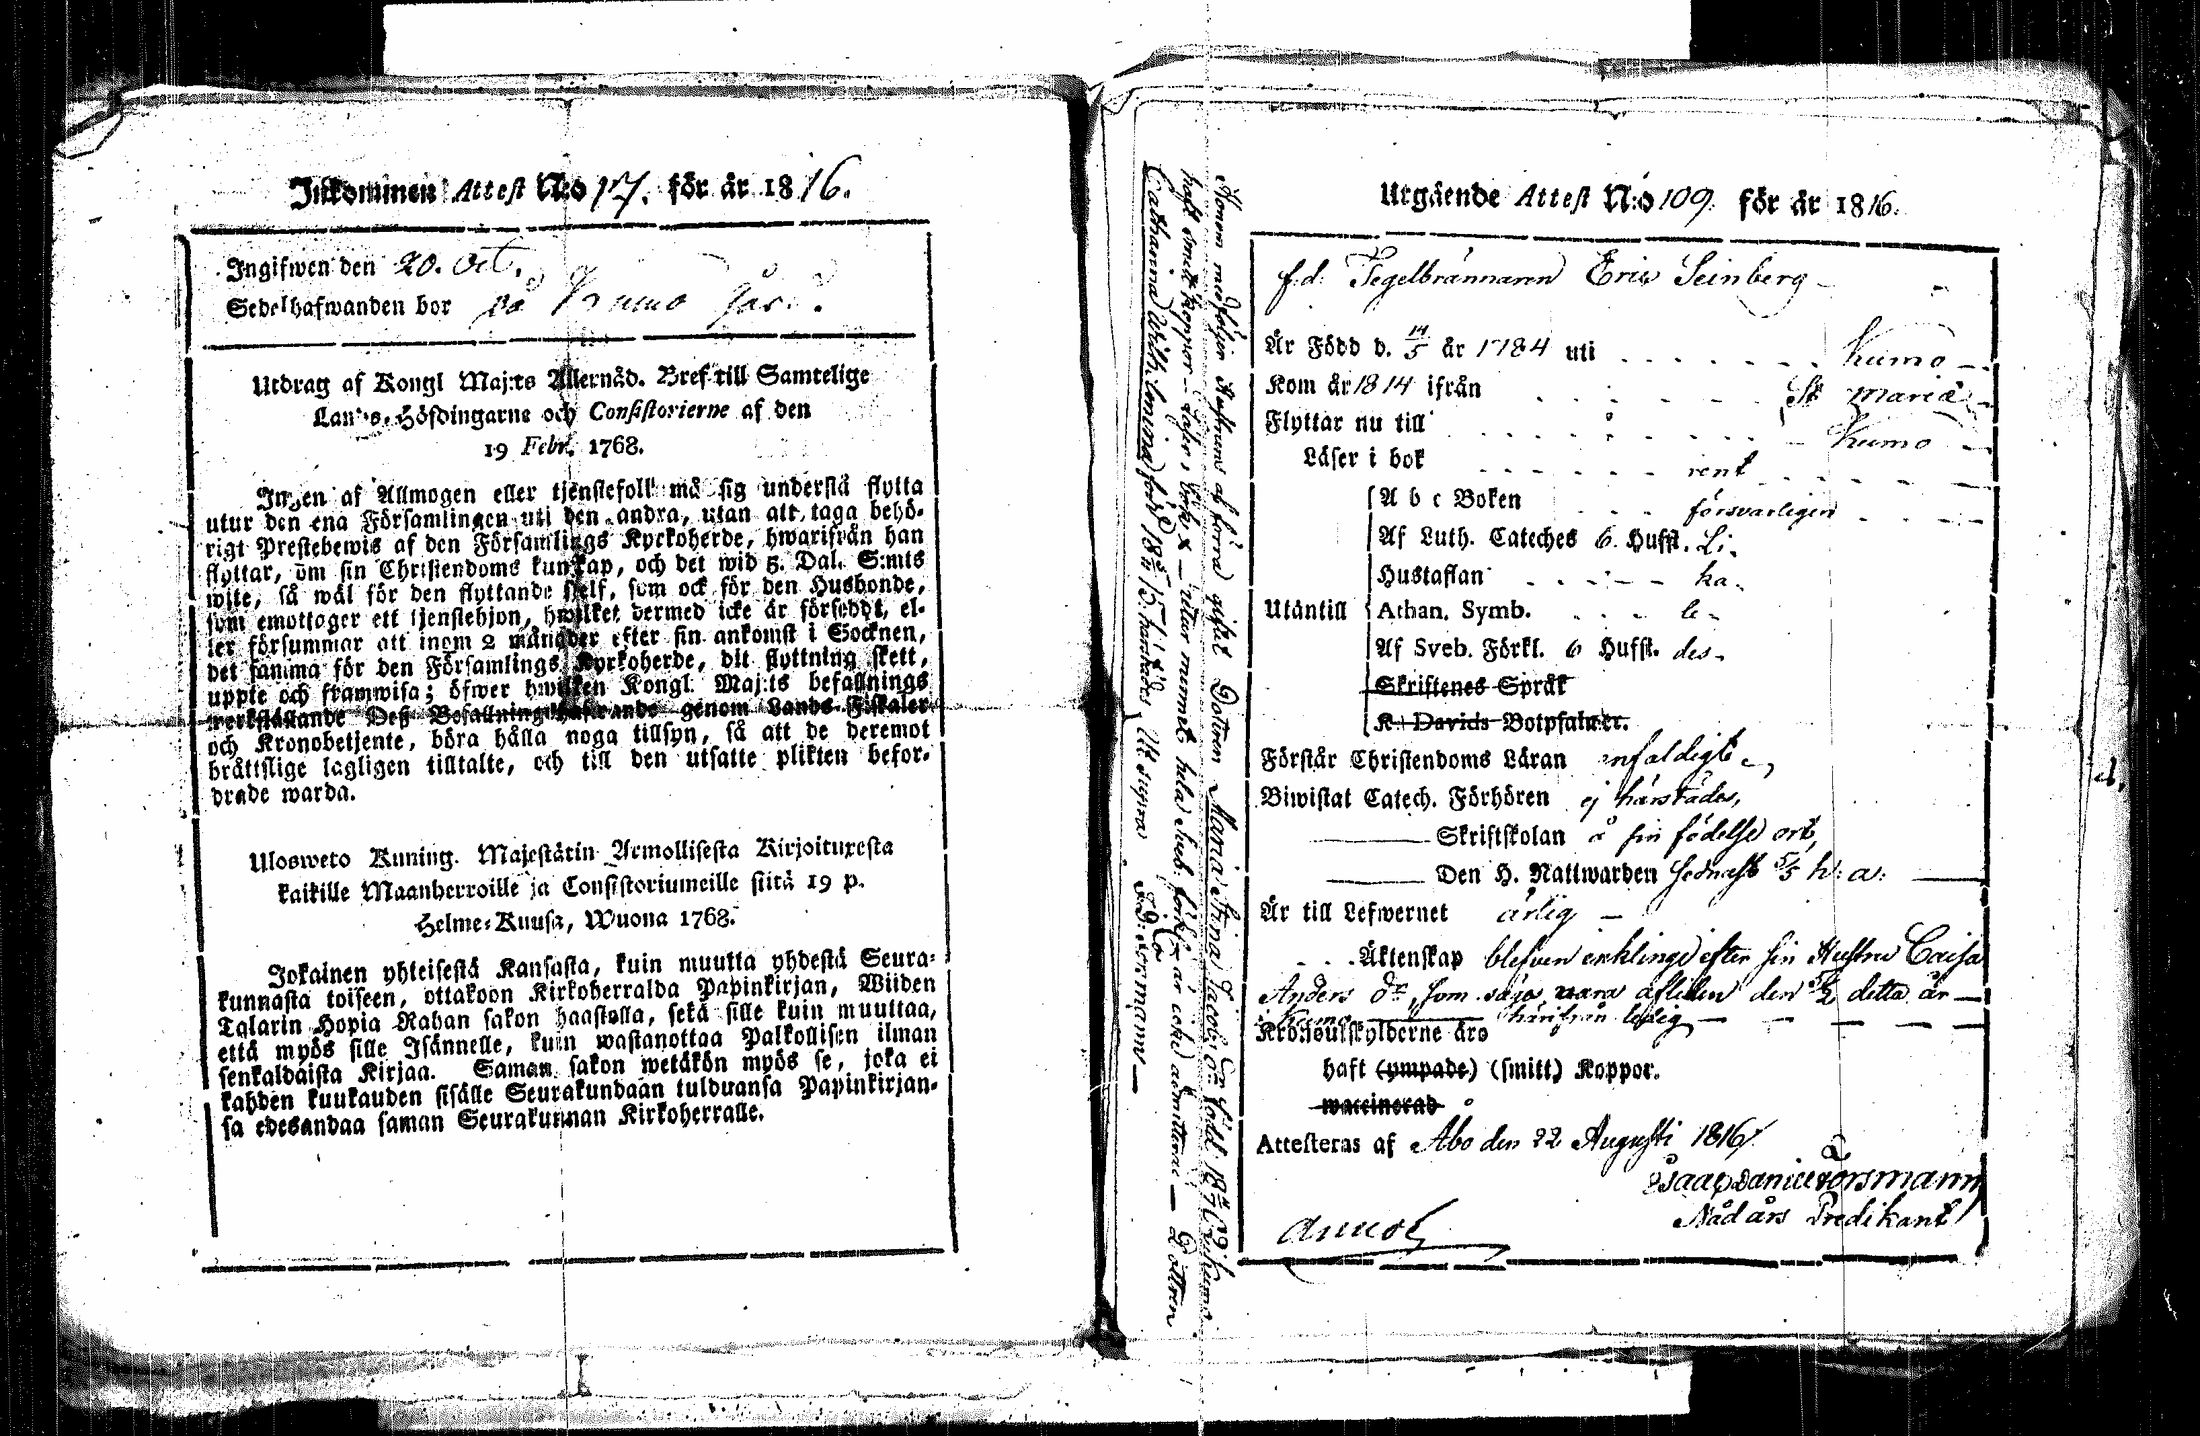 Inkommen Attest N:o 17. för år 1816.
Ingifwen den 20. Oct.
Sedelhafwanden bor på Kumo
Utdrag af Kongl Maj:ts Allernåd. Bref till Samtelige
Lands-Höfdingarne och Consistorierne af den
19 Febr. 1768.
Ingen af Allmogen eller tjenstefolk må sig understå flytta
utur den ena Församlingen uti den andra, utan att taga behö-
rigt Prestebewis af den Församlings Kyrkoherde, hwarifrån han
flyttar, om sin Christendoms kunskap, och det wid 5. Dal. S:mts
wite, så wäl för den flyttande sjelf, som ock för den Husbonde,
som emottager ett tjenstehjon, hwilket dermed icke är försedt, el-
ler försummar att inom 2 månader efter sin ankomst i Socknen,
det samma för den Församlings Kyrkoherde, dit flyttning skett,
uppte och framwisa; öfwer hwilken Kongl. Maj:ts befallnings
werkställande Deß Befallningshafwande genom Lands-Fiskaler
och Kronobetjente, böra hålla noga tillsyn, så att de deremot
bråttslige lagligen tilltalte, och till den utsatte plikten befor-
drade warda.
Ulosweto Kuning. Majestätin Armollisesta Kirjoituxesta
kaikille Maanherroille ja Consistoriumeille siitä 19 p.
Helme-Kuusa, Wuona 1768.
Jokainen yhteisestä Kansasta, kuin muutta yhdestä Seura-
kunnasta toiseen, ottakoon Kirkoherralda Papinkirjan, Wiiden
Talarin Hopia Rahan sakon haastolla, sekä sille kuin muuttaa,
että myös sille Isännelle, kuin wastanottaa Palkollisen ilman
senkaldaista Kirjaa. Saman sakon wetäkön myös se, joka ei
kahden kuukauden sisälle Seurakundaan tulduansa Papinkirjan-
sa edesandaa saman Seurakunnan Kirkoherralle.
Honom medföljer Hustruns af förra giftet Dottren Maria Stina Jacobs dr född
haft smitt koppor - läser i bok - utur minnet hela Sveb. förkl. är icke admitterad - Dottren
Catharina Wilh.lmina född härstädes, Ut supra I. D: Forsmann -
Utgående Attest N:o 109. för år 1816.
f.d. Tegelbrännaren Eric Seinberg -
Är Född d. 14/5 år 1784 uti Kumo -
Kom år 1814 ifrån St Mariæ
Flyttar nu till Kumo
Läser i bok rent
A b c Boken försvarligen
Af Luth. Cateches 6. Hufst. Li-
Hustaflan ka-
Utantill Athan. Symb. le-
Af Sveb. Förkl. 6 Hufst. des-
Skriftenes Språk
K. Davids Botpsalmer.
Förstår Christendoms Läran enfaldigt -,
Biwistat Catech. Förhören ej härstädes,
Skriftskolan å sin födelse ort,
Den H. Nattwarden sednast 5/5 h: a:
Är till Lefwernet ärlig -
Äktenskap blefven enkling efter sin Hustru Caisa
Anders dr, som säges vara afliden den 5/2 detta år -
i Kumo härifrån ledig -
Kronoutskylderne äro
haft (ympade) (smitt) Koppor.
waccinerad
Attesteras af Åbo den 22 Augusti 1816.
Isaac Daniel Forsmann
Nådårs Predikant